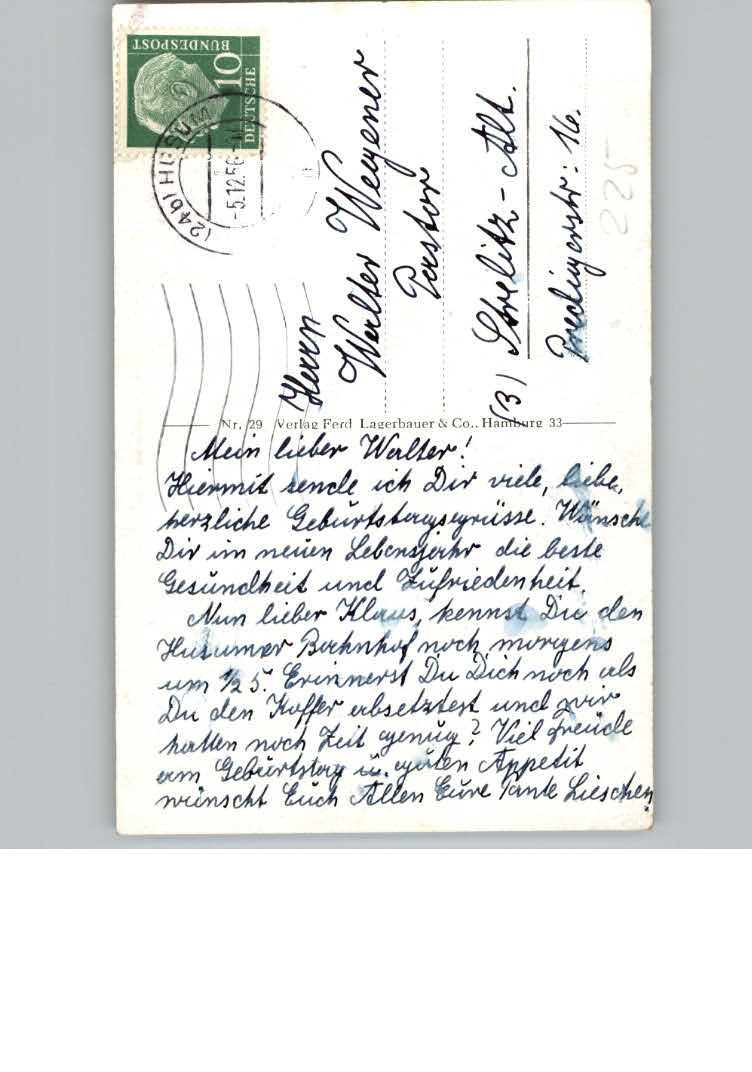 DEUTSCHE
BUNDESPOST
10
(24b) HUSUM
-5.12.56
Herrn
Walter Wegener
Pastor
(3) Strelitz - Alt.
16.
225
Nr. 29 Verlag Ferd Lagerbauer & Co., Hamburg 33
Mein lieber Walter!
Hiermit sende ich Dir viele, liebe,
herzliche Geburtstagsgrüsse. Wünsche
Dir im neuen Lebensjahr die beste
Gesundheit und Zufriedenheit.
Nun lieber Klaus, kennst Du den
Husumer Bahnhof noch morgens
um 1/2 5. Erinnerst Du Dich noch als
Du den Koffer absetztest und wir
hatten noch Zeit genug? Viel Freude
am Geburtstag u. guten Appetit
wünscht Euch Allen Eure Tante Lieschen.